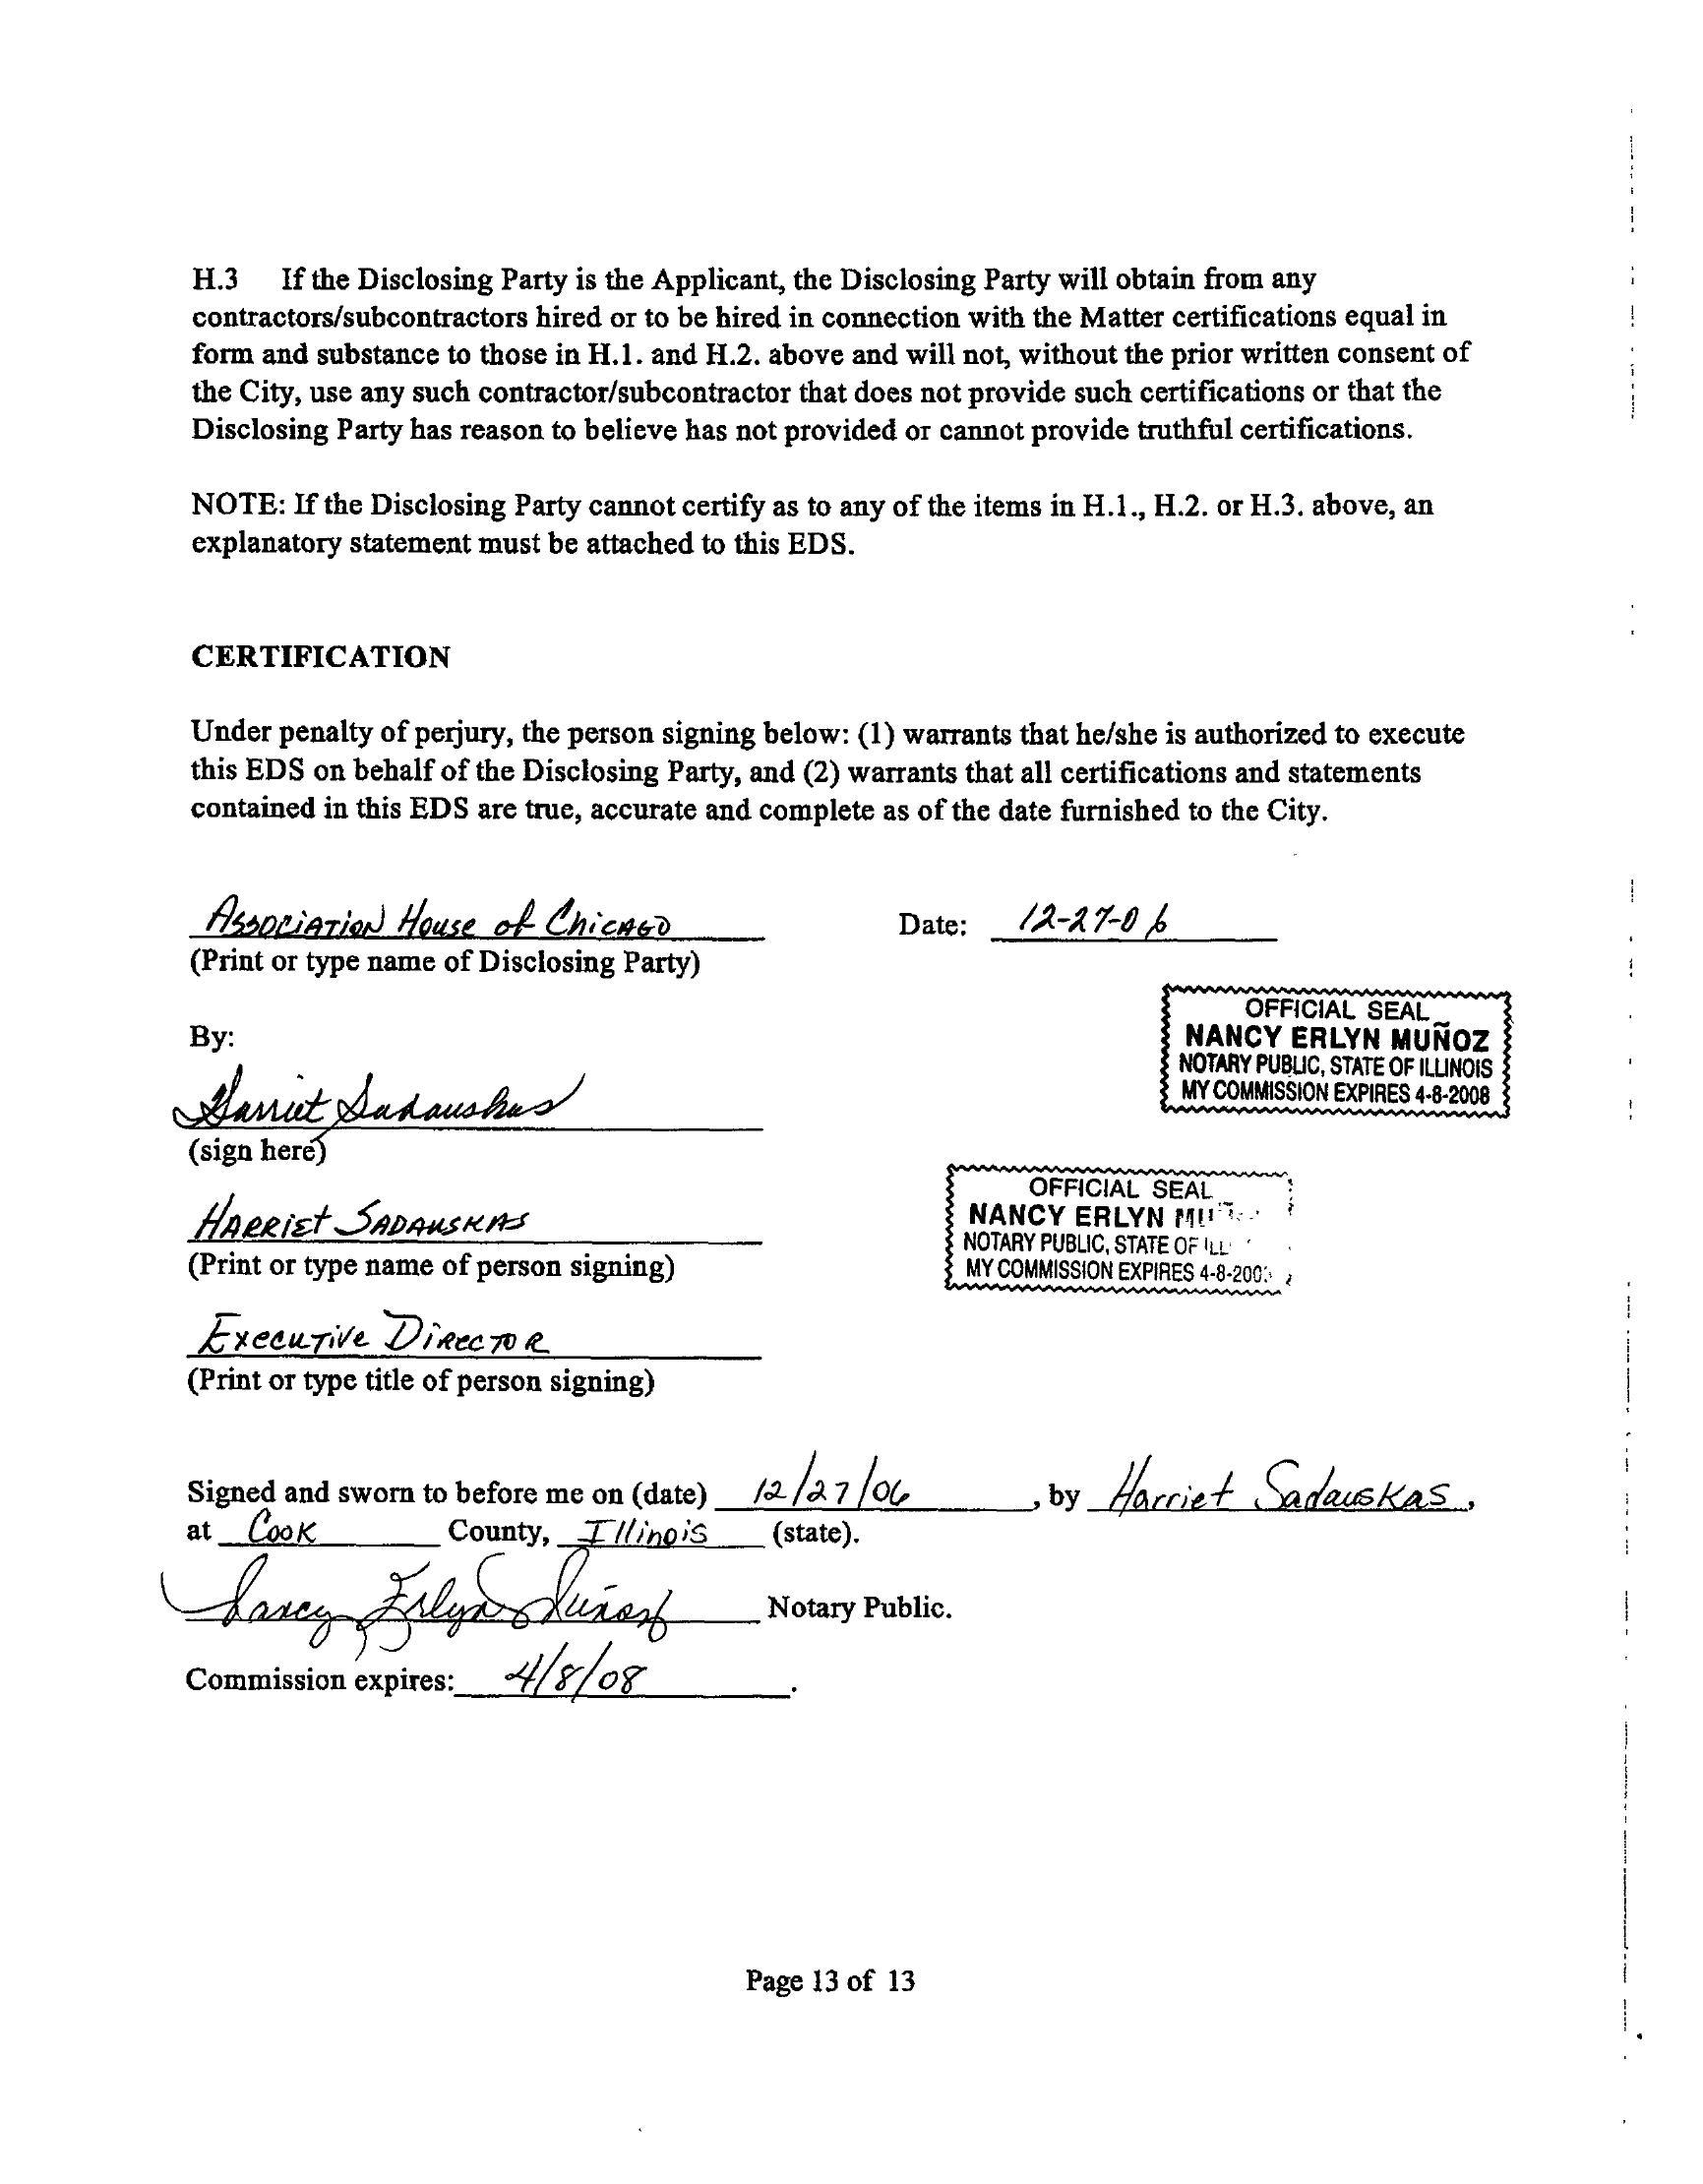 H.3 If the Disclosing Party is the Applicant, the Disclosing Party will obtain from any
contractors/subcontractors hired or to be hired in connection with the Matter certifications equal in
form and substance to those in H.1. and H.2. above and will not, without the prior written consent of
the City, use any such contractor/subcontractor that does not provide such certifications or that the
Disclosing Party has reason to believe has not provided or cannot provide truthful certifications.
NOTE: If the Disclosing Party cannot certify as to any of the items in H.1., H.2. or H.3. above, an
explanatory statement must be attached to this EDS.
CERTIFICATION
Under penalty of perjury, the person signing below: (1) warrants that he/she is authorized to execute
this EDS on behalf of the Disclosing Party, and (2) warrants that all certifications and statements
contained in this EDS are true, accurate and complete as of the date furnished to the City.
Association House of Chicago Date: 12-27-06
(Print or type name of Disclosing Party)
OFFICIAL SEAL
NANCY ERLYN MUÑOZ
NOTARY PUBLIC, STATE OF ILLINOIS
MY COMMISSION EXPIRES 4-8-2008
By:
Harriet Sadauskas
(sign here)
OFFICIAL SEAL
NANCY ERLYN
NOTARY PUBLIC, STATE OF ILL
MY COMMISSION EXPIRES
Harriet Sadauskas
(Print or type name of person signing)
Executive Director
(Print or type title of person signing)
Signed and sworn to before me on (date) 12/27/06, by Harriet Sadauskas,
at Cook County, Illinois (state).
Nancy Erlyn Muñoz Notary Public.
Commission expires: 4/8/08.
Page 13 of 13